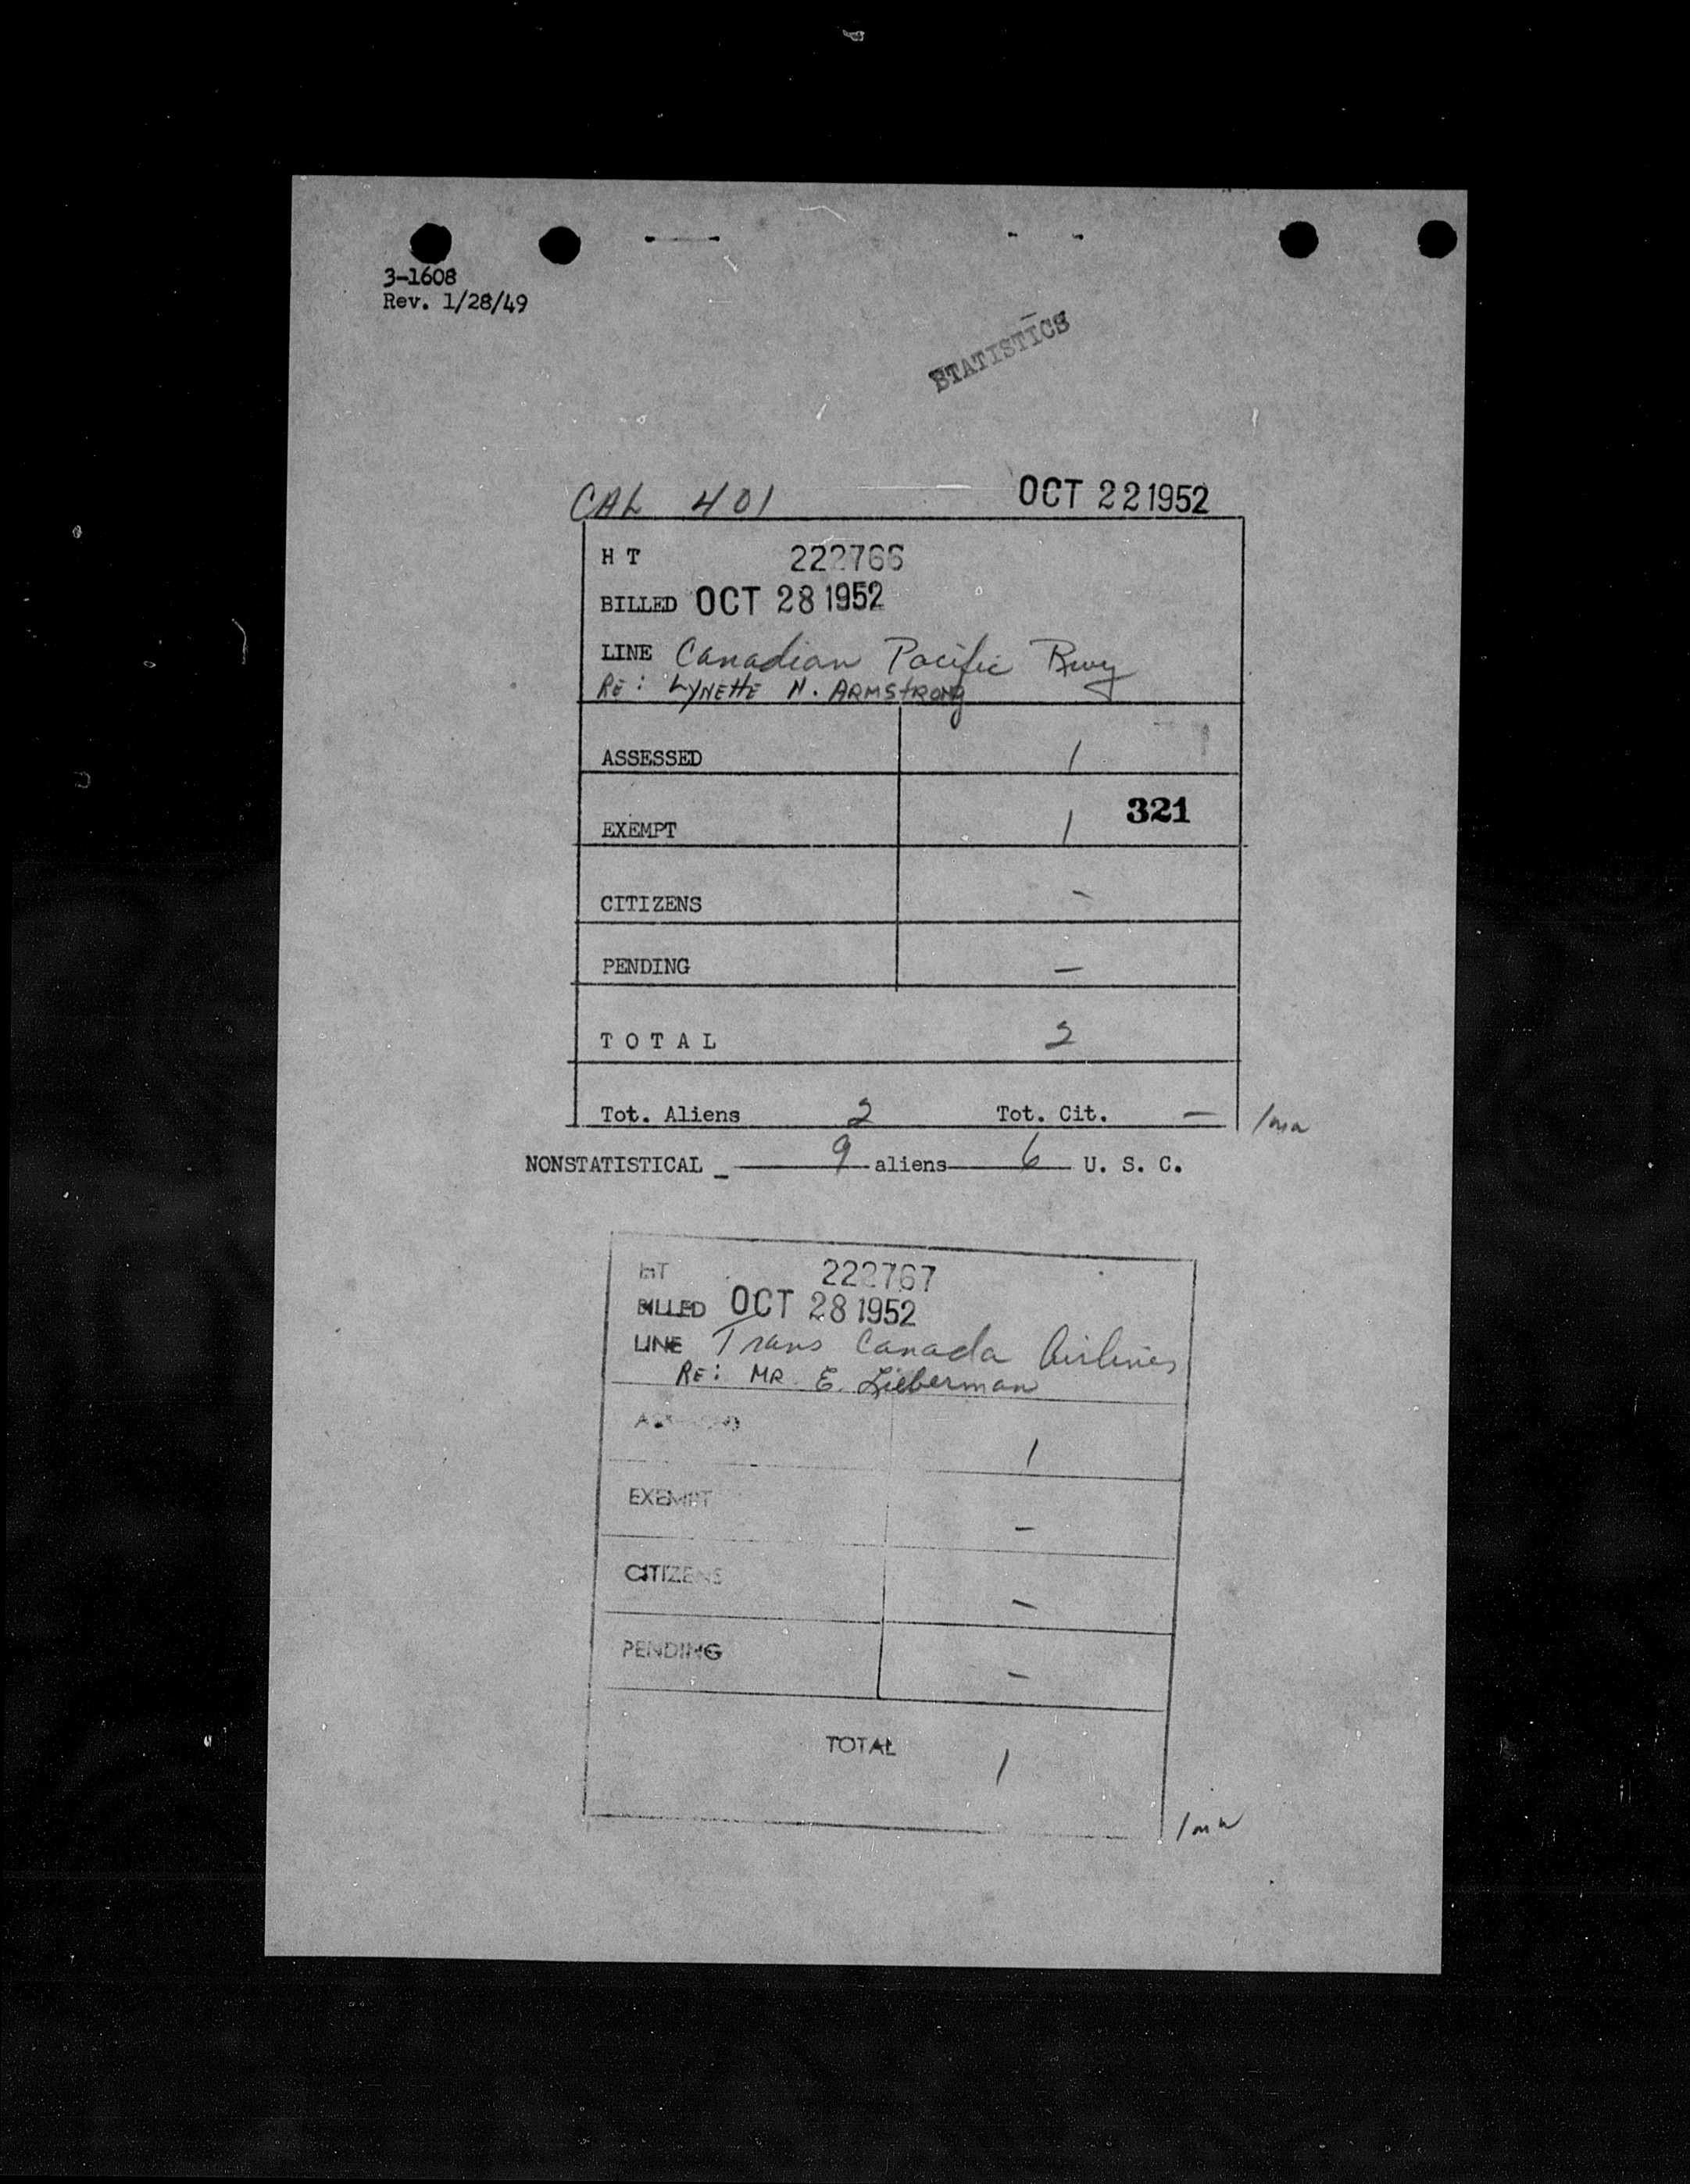 3-1608
Rev. 1/28/49
STATISTICS
CAL 401 OCT 22 1952
H T 222766
BILLED OCT 28 1952
LINE Canadian Pacific Rwy
RE: LYNETTE N. ARMSTRONG
ASSESSED 1
EXEMPT 1 321
CITIZENS -
PENDING -
T O T A L 2
Tot. Aliens 2 Tot. Cit. -
NONSTATISTICAL - 9 aliens 6 U. S. C.
HT 222767
BILLED OCT 28 1952
LINE Trans Canada Airlines
RE: MR E. Lieberman
1
EXEMPT -
CITIZENS -
PENDING -
TOTAL 1